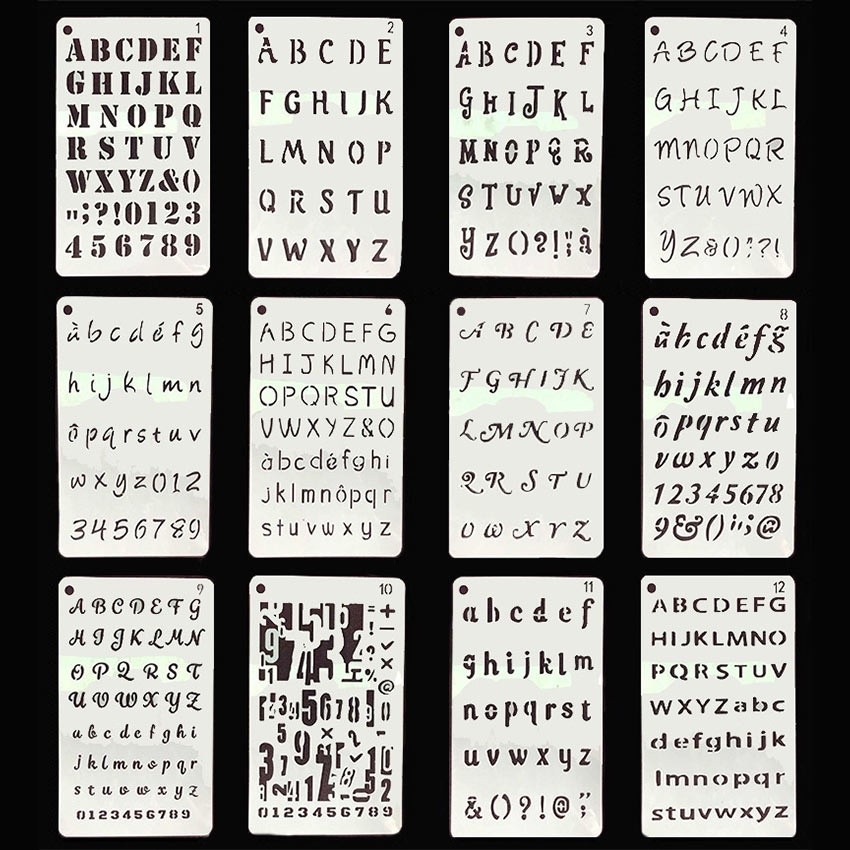 1
ABCDEF
GHIJKL
MNOPQ
RSTUV
WXYZ&()
";?!0123
456789
2
ABCDE
FGHIJK
LMNOP
QRSTU
VWXYZ
3
ABCDEF
GHIJKL
MNOPQR
STUVWX
YZ()?!";à
4
ABCDEF
GHIJKL
MNOPQR
STUVWX
YZ&()";?!
5
àbcdéfg
hijklmn
ôpqrstuv
wxyz012
3456789
6
ABCDEFG
HIJKLMN
OPQRSTU
VWXYZ&()
àbcdéfghi
jklmnôpqr
stuvwxyz
7
ABCDE
FGHIJK
LMNOP
QRSTU
VWXYZ
8
àbcdéfg
hijklmn
ôpqrstu
vwxyz0
12345678
9&()!";@
9
ABCDEFG
HIJKLMN
OPQRST
UVWXYZ
abcdefghi
jklmnopqr
stuvwxyz
0123456789
10
0123456789
11
abcdef
ghijklm
nopqrst
uvwxyz
&()?!@";
12
ABCDEFG
HIJKLMNO
PQRSTUV
WXYZabc
defghijk
lmnopqr
stuvwxyz